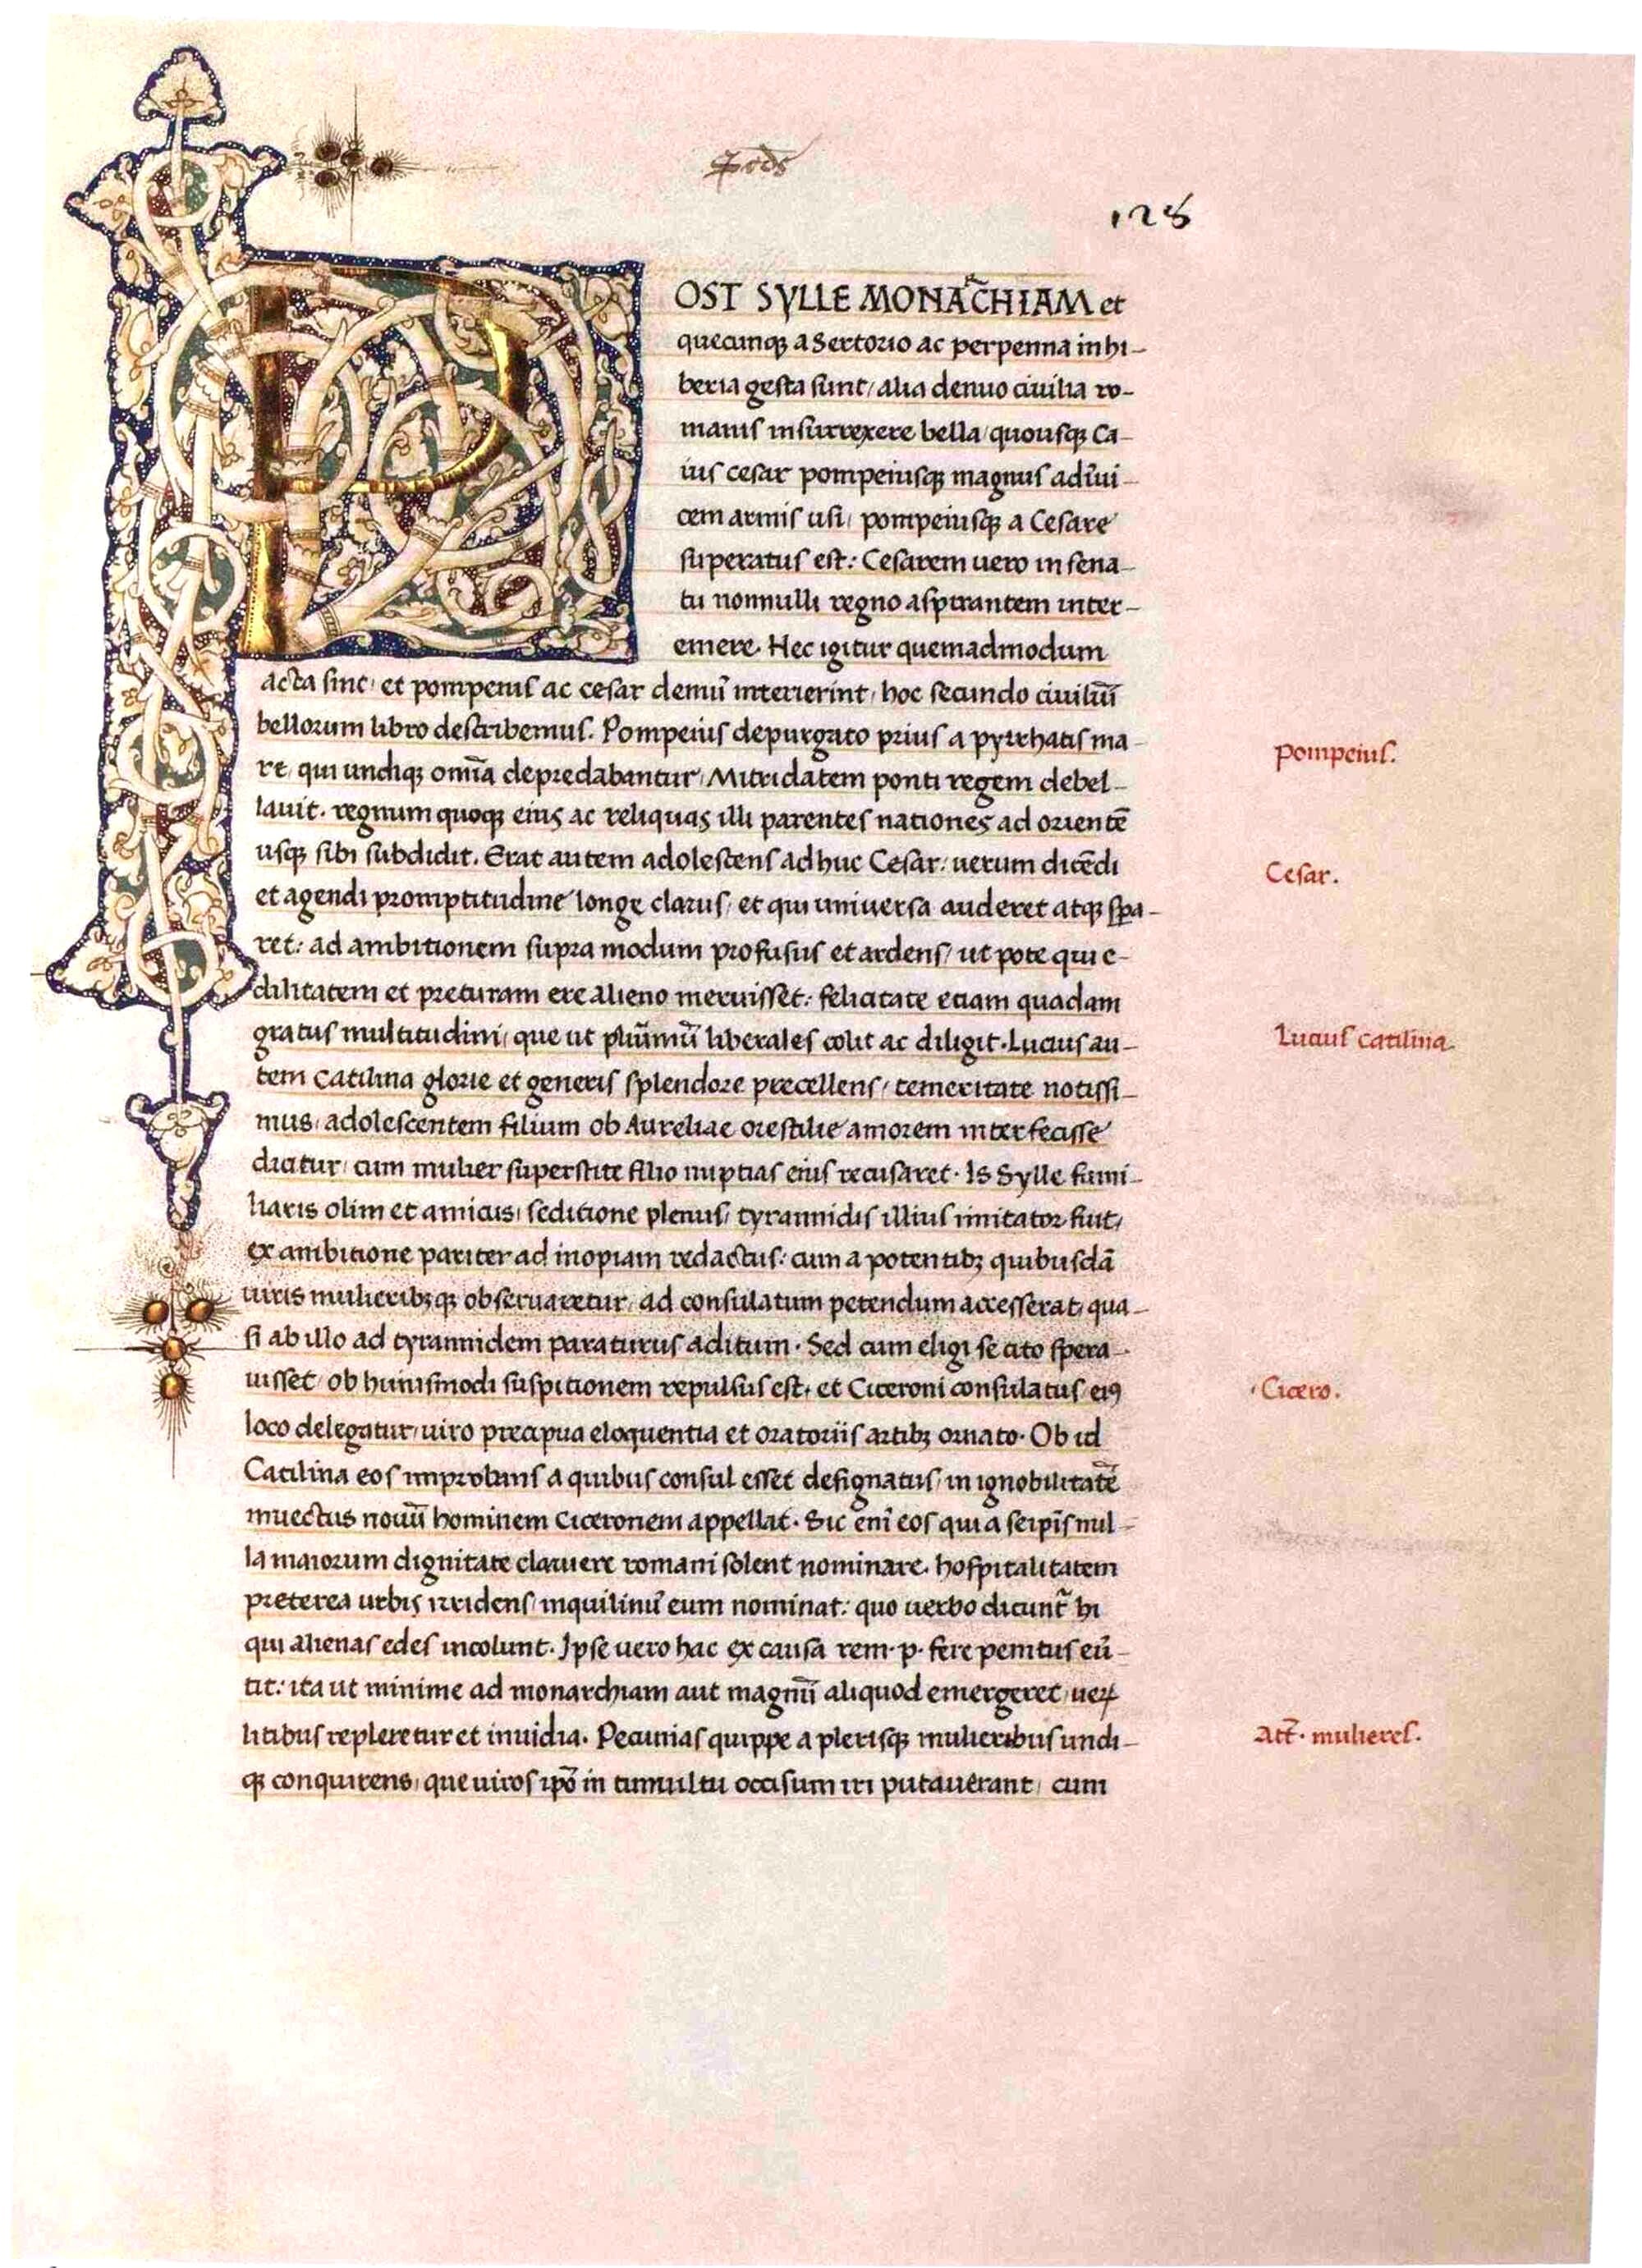 128
POST SYLLE MONAC̃HIAM et
quecunqꝫ a Sertorio ac perpenna in hi-
beria gesta sunt/ alia denuo ciuilia ro-
manis insurrexere bella/ quousqꝫ Ca-
ius cesar pompeiusqꝫ magnus adĩui-
cem armis usi, pompeiusqꝫ a Cesare
superatus est: Cesarem uero in sena-
tu nonnulli regno aspirantem inter-
emere. Hec igitur quemadmodum
acta sint, et pompeius ac cesar demũ interierint, hoc secundo ciuiliũ
bellorum libro describemus. Pompeius depurgato prius a pyrrhatis ma-
re, qui undiqꝫ omĩa depredabantur, Mitridatem ponti regem debel-
lauit. regnum quoqꝫ eius ac reliquas illi parentes nationes ad orientẽ
usqꝫ sibi subdidit. Erat autem adolescens adhuc Cesar: uerum dicẽdi
et agendi promptitudine longe clarus, et qui universa auderet atqꝫ spa-
ret: ad ambitionem supra modum profusus et ardens/ ut pote qui e-
dilitatem et preturam ere alieno meruisset: felicitate etiam quadam
gratus multitudini, que ut plurimũ liberales colit ac diligit. Lucius au-
tem Catilina glorie et generis splendore precellens/ temeritate notissi-
mus, adolescentem filium ob Aureliae orestilie amorem interfecisse
dicitur, cum mulier superstite filio nuptias eius recusaret. Is Sylle fami-
liaris olim et amicus, seditione plenus, tyrannidis illius imitator fuit,
ex ambitione pariter ad inopiam redactus: cum a potentibꝫ quibusdã
uiris mulieribꝫqꝫ obseruaretur, ad consulatum petendum accesserat, qua-
si ab illo ad tyrannidem paraturus aditum. Sed cum eligi se cito spera-
uisset/ ob huiusmodi suspitionem repulsus est, et Ciceroni consulatus eiꝰ
loco delegatur, uiro precipua eloquentia et oratoriis artibꝫ ornato. Ob id
Catilina eos improbans a quibus consul esset designatus, in ignobilitatẽ
inuectus nouũ hominem Ciceronem appellat. Sic enĩ eos qui a seipĩs nul-
la maiorum dignitate claruere romani solent nominare. hospitalitatem
preterea urbis irridens/ inquilinũ eum nominat: quo uerbo dicunt̃ hi
qui alienas edes incolunt. Ipse uero hac ex causa rem. p. fere penitus eũ-
tit: ita ut minime ad monarchiam aut magnũ aliquod emergeret, ueꝝ
litibus repleretur et inuidia. Pecunias quippe a plerisqꝫ mulieribus undi-
qꝫ conquirens, que uiros ipõ in tumultu occisum iri putauerant, cum
Pompeius.
Cesar.
Lucius catilina.
Cicero.
Att̃. mulieres.